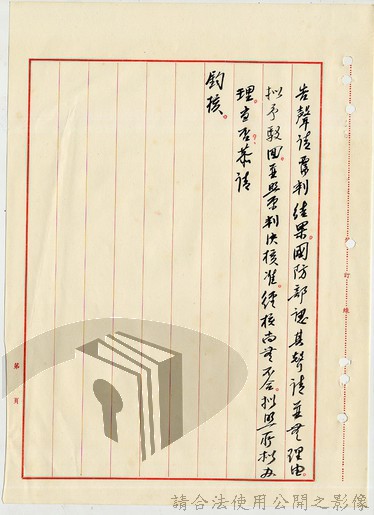 告聲請覆判結果。國防部認其聲請並無理由
拟予駁回。並照原判決核准。經核尚無不合。拟照所拟办
理。當否?恭請
鈞核。
訂線
第 頁
請合法使用公開之影像